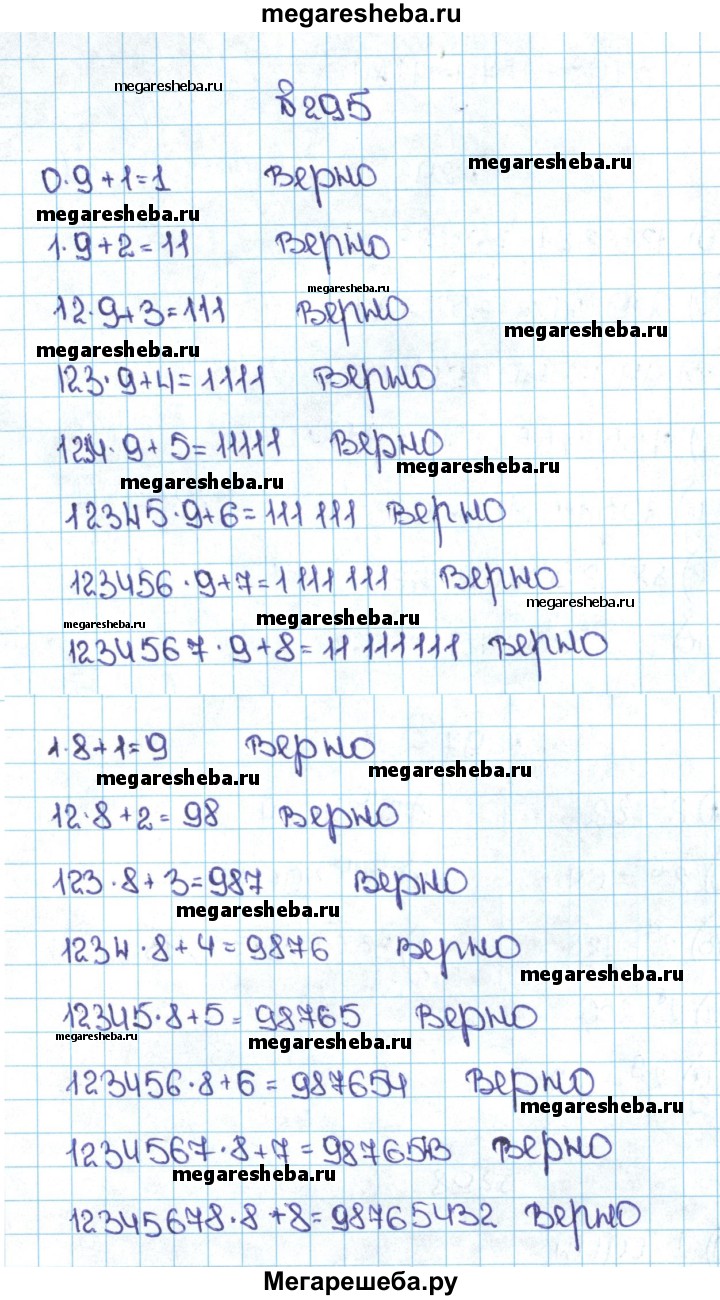 megaresheba.ru
megaresheba.ru
№ 295
megaresheba.ru
0·9+1=1 Верно
megaresheba.ru
1·9+2=11 Верно
megaresheba.ru
12·9+3=111 Верно
megaresheba.ru
megaresheba.ru
123·9+4=1111 Верно
1234·9+5=11111 Верно
megaresheba.ru
megaresheba.ru
12345·9+6=111 111 Верно
123456·9+7=1 111 111 Верно
megaresheba.ru
megaresheba.ru
megaresheba.ru
1234567·9+8=11 111111 Верно
1·8+1=9 Верно
megaresheba.ru
megaresheba.ru
12·8+2=98 Верно
123·8+3=987 Верно
megaresheba.ru
1234·8+4=9876 Верно
megaresheba.ru
12345·8+5=98765 Верно
megaresheba.ru
megaresheba.ru
123456·8+6=987654 Верно
megaresheba.ru
1234567·8+7=9876543 Верно
megaresheba.ru
12345678·8+8=98765432 Верно
Мегарешеба.ру